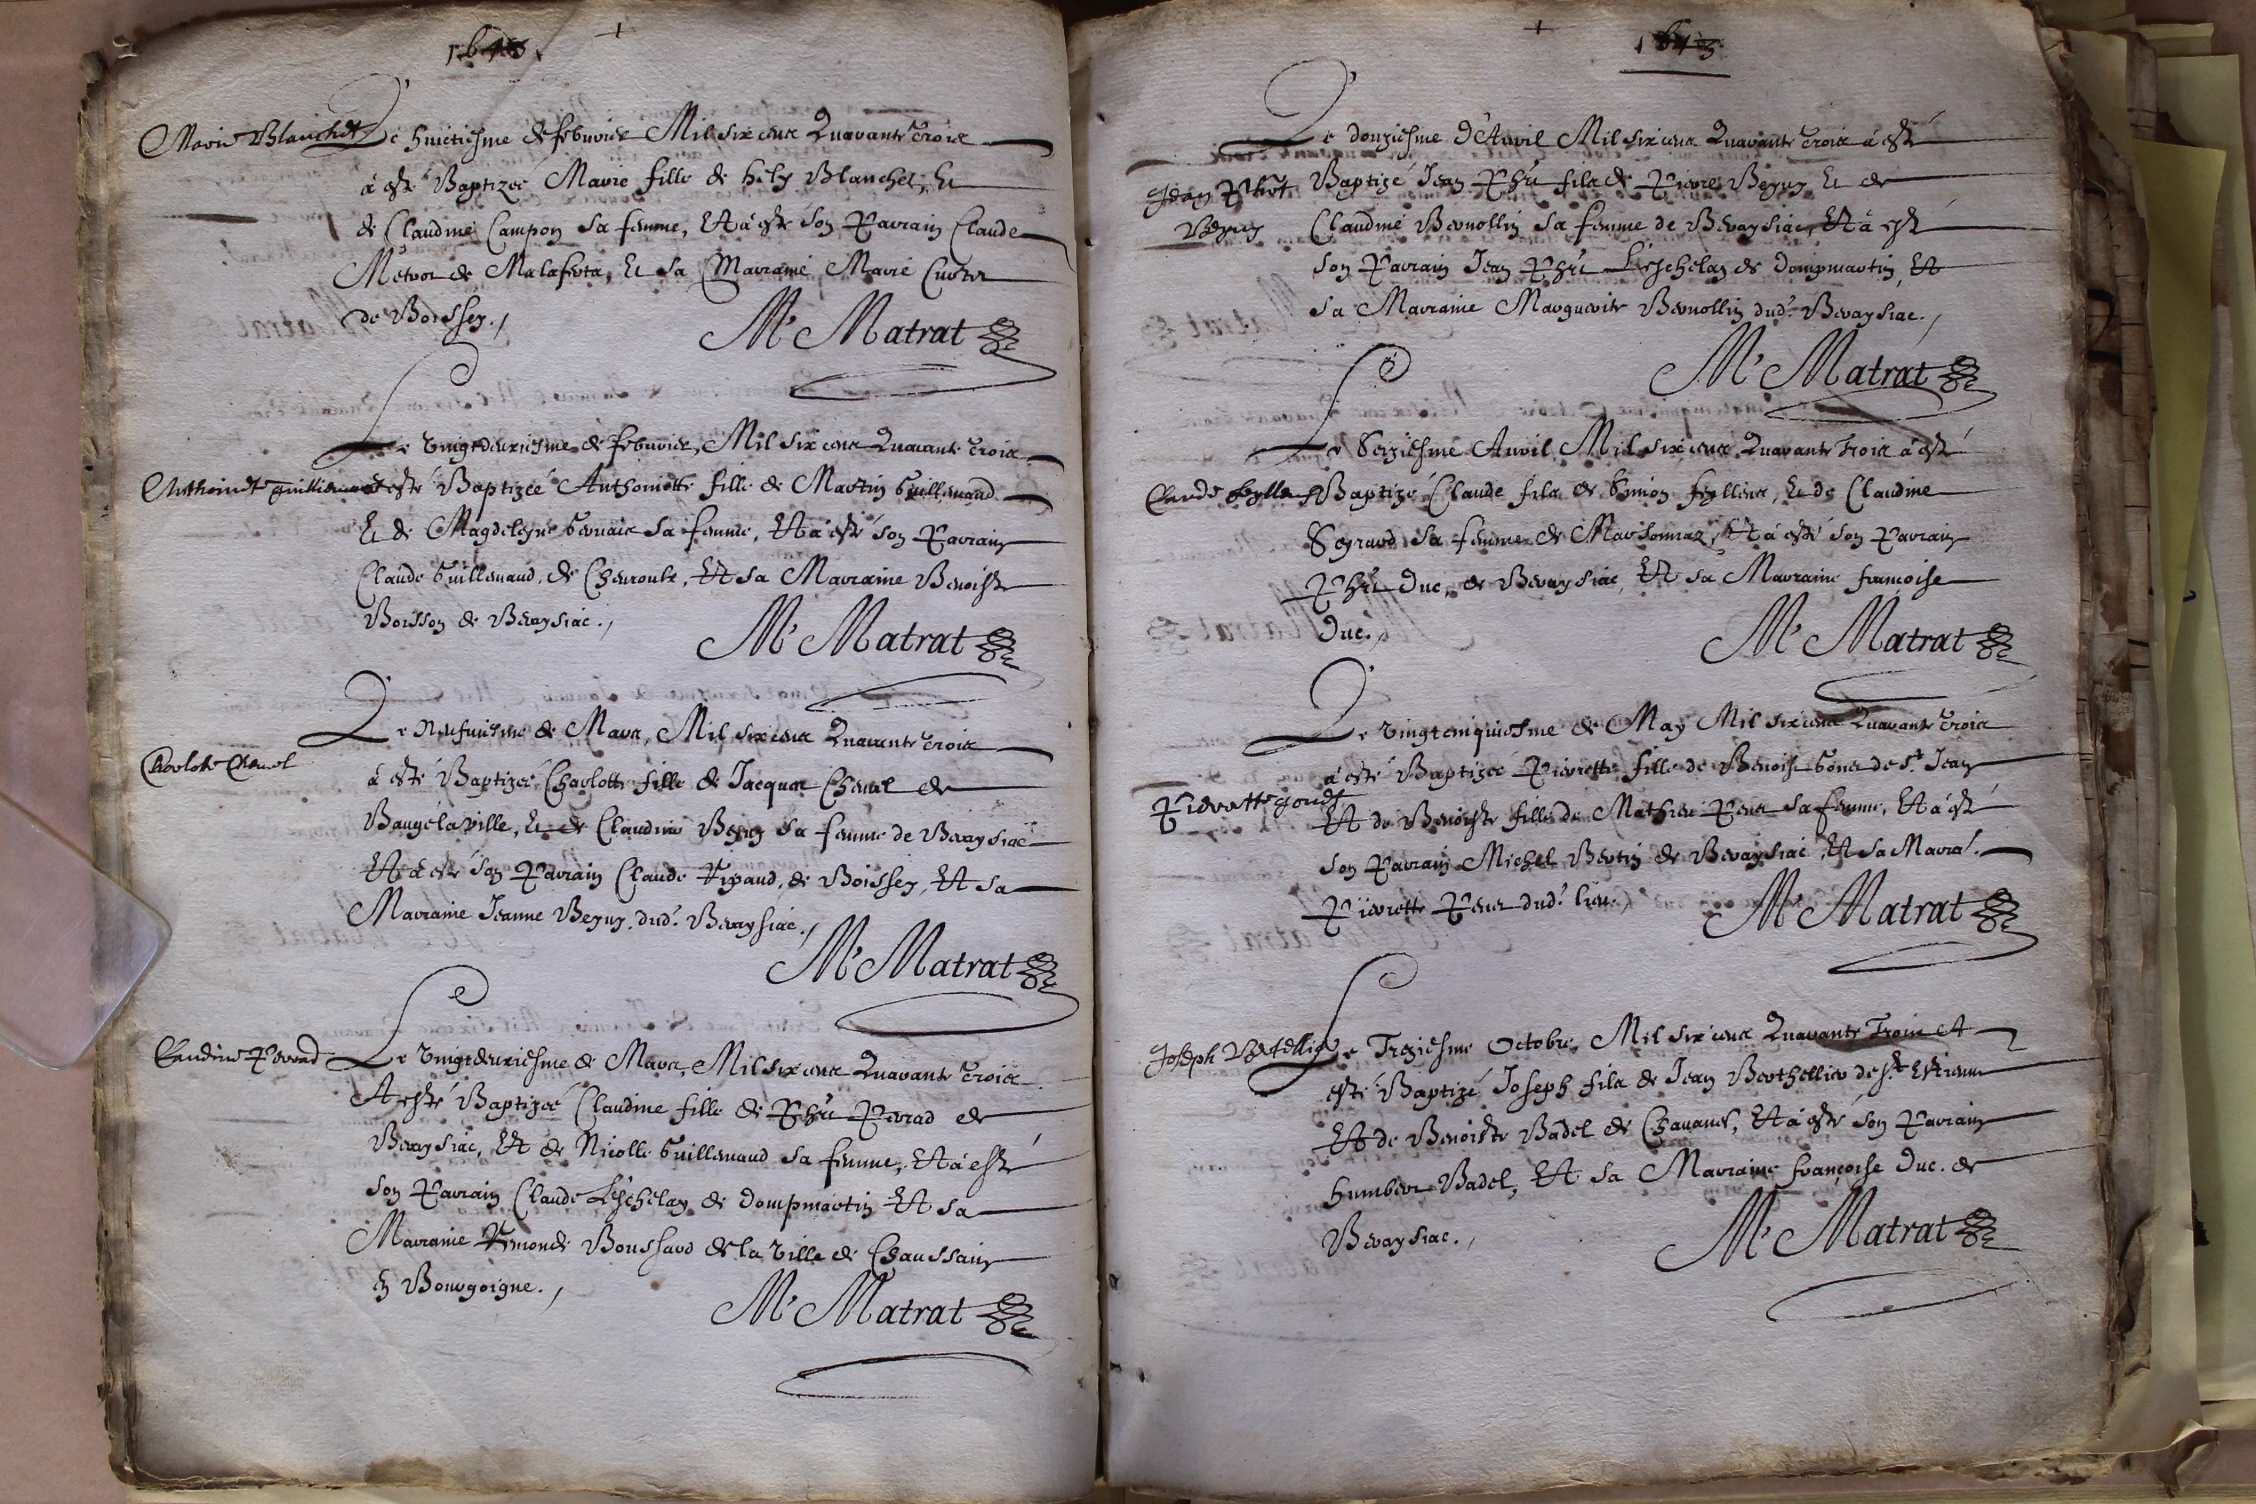 1643.
Marie Blanchet
Le huictiesme de febvrier Mil six cens Quarante trois
à esté Baptizeé Marie fille de hely Blanchet, Et
de Claudine Campon sa femme, Et à esté son Parrain Claude
de Malaferta, Et sa Marraine Marie
de Boissey.
M. Matrat
Le vingtdeuxiesme de febvrier, Mil six cens Quarante trois
Anthoinette guillemaud
à esté Baptizeé Anthoinette fille de Martin Guillemaud
Et de Magdeleyne Gervais sa femme, Et à esté son Parrain
Claude Guillemaud, de Chevroult, Et sa Marraine Benoiste
Boisson de Bereysiac.
M. Matrat
Le Neufuiesme de Mars, Mil six cens Quarante trois
Charlotte Chanel
à esté Baptizeé Charlotte fille de Jacques Chanel de
Baugé la ville, Et de Claudine Beguy sa femme de Bereysiac
Et à esté son Parrain Claude de Boissey, Et sa
Marraine Jeanne Beguy, dud. Bereysiac.
M. Matrat
Claudine Perrad
Le vingtdeuxiesme de Mars, Mil six cens Quarante trois
A esté Baptizeé Claudine fille de Pht Perrad de
Bereysiac, Et de Nicolle Guillemaud sa femme, Et à esté
son Parrain Claude Leschelay de dompmartin Et sa
Marraine Boussard de la ville de Chaussain
en Bourgoigne.
M. Matrat
1643
Le douziesme d'Avril Mil six cens Quarante trois à esté
Jean Phbt
Beguy
Baptizé Jean Pht fils de Pierre Beguy Et de
Claudine Bernollin sa femme de Bereysiac, Et à esté
son Parrain Jean Pht Leschelay de dompmartin, Et
sa Marraine Marguerite Bernollin dud. Bereysiac.
M. Matrat
Le Seiziesme Avril Mil six cens Quarante Trois à esté
Claude
Baptizé Claude fils de Simon Et de Claudine
sa femme de Marsonnaz, Et à esté son Parrain
Pht Duc, de Bereysiac, Et sa Marraine francoise
Duc.
M. Matrat
Le vingtcinquiesme de May Mil six cens Quarante trois
à esté Baptizeé Pierrette fille de Benoist de St. Jean
Pierrette
Et de Benoiste fille de Mathieu sa femme, Et à esté
son Parrain Michel Bertin de Bereysiac, Et sa Marra.
Pierrette dud. lieu.
M. Matrat
Joseph Bertellier
Le Treziesme Octobre, Mil six cens Quarante Trois et
esté Baptizé Joseph fils de Jean Berthellier de St. Estienne
Et de Benoiste Badel de Chavanes, Et à esté son Parrain
humbert Badel, Et sa Marraine françoise Duc. de
Bereysiac.
M. Matrat